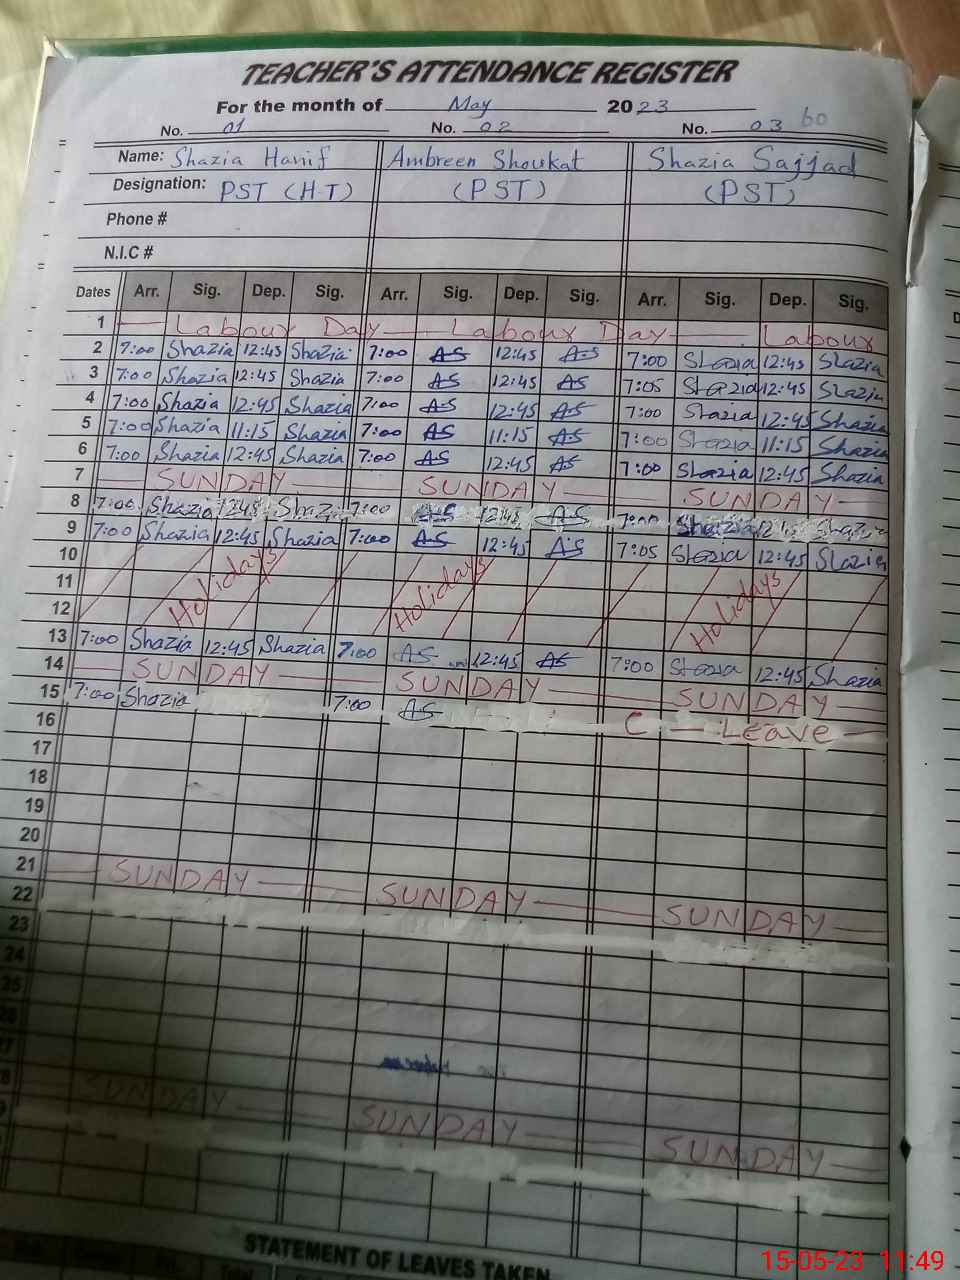 TEACHER'S ATTENDANCE REGISTER
For the month of May 2023
No. 01 No. 02 No. 03 60
Name: Shazia Hanif Ambreen Shoukat Shazia Sajjad
Designation: PST (H-T) (PST) (PST)
Phone #
N.I.C #
Dates Arr. Sig. Dep. Sig. Arr. Sig. Dep. Sig. Arr. Sig. Dep. Sig.
1 Labour Day Labour Day Labour
2 7:00 Shazia 12:45 Shazia 7:00 AS 12:45 AS 7:00 Shazia 12:45 Shazia
3 7:00 Shazia 12:45 Shazia 7:00 AS 12:45 AS 7:05 Shazia 12:45 Shazia
4 7:00 Shazia 12:45 Shazia 7:00 AS 12:45 AS 7:00 Shazia 12:45 Shazia
5 7:00 Shazia 11:15 Shazia 7:00 AS 11:15 AS 7:00 Shazia 11:15 Shazia
6 7:00 Shazia 12:45 Shazia 7:00 AS 12:45 AS 7:00 Shazia 12:45 Shazia
7 SUNDAY SUNDAY SUNDAY
8 7:00 Shazia 12:45 Shaz 7:00 AS 12:45 AS 7:00 Shazia 12 Shazia
9 7:00 Shazia 12:45 Shazia 7:00 AS 12:45 AS 7:05 Shazia 12:45 Shazia
10
11 Holidays Holidays Holidays
12
13 7:00 Shazia 12:45 Shazia 7:00 AS 12:45 AS 7:00 Shazia 12:45 Shazia
14 SUNDAY SUNDAY SUNDAY
15 7:00 Shazia 7:00 AS C - Leave
16
17
18
19
20
21 SUNDAY SUNDAY SUNDAY
22
23
24
25
26
27
28 SUNDAY SUNDAY SUNDAY
STATEMENT OF LEAVES TAKEN
15-05-23 11:49